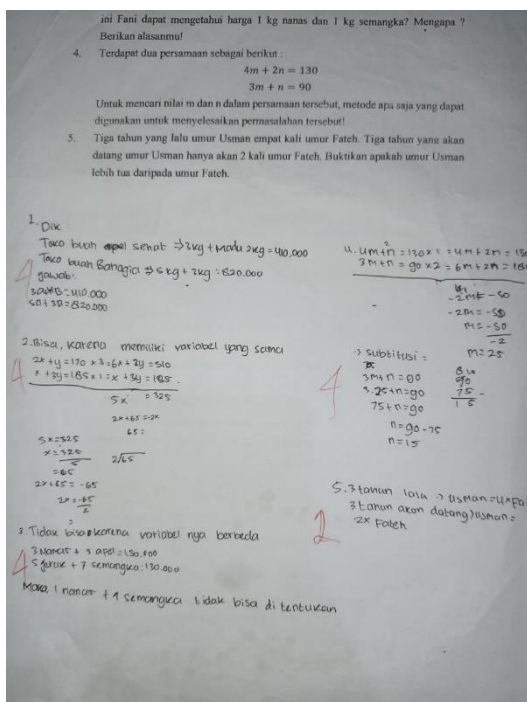 ini Fani dapat mengetahui harga 1 kg nanas dan 1 kg semangka? Mengapa ?
Berikan alasanmu!
4. Terdapat dua persamaan sebagai berikut :
4m + 2n = 130
3m + n = 90
Untuk mencari nilai m dan n dalam persamaan tersebut, metode apa saja yang dapat
digunakan untuk menyelesaikan permasalahan tersebut!
5. Tiga tahun yang lalu umur Usman empat kali umur Fateh. Tiga tahun yang akan
datang umur Usman hanya akan 2 kali umur Fateh. Buktikan apakah umur Usman
lebih tua daripada umur Fateh.
1. Dik
Toko buah sehat ⇒ 3kg + Madu 2kg = 410.000
Toko buah Bahagia ⇒ 5kg + 3kg = 820.000
jawab:
= 410.000
50 + 30 = 820.000
4
2. Bisa, karena memiliki variabel yang sama
2x + y = 170 x 3 = 6x + 3y = 510
x + 3y = 185 x 1 = x + 3y = 185
4
5x = 325
2x + 65 = 
65 =
5x = 325
x = 325
5
= 65
2x + 65 = -65
2x = -65
2
=
3. Tidak bisa karena variabel nya berbeda
3 Nanas + 5 apel = 150.000
5 jeruk + 7 semangka = 130.000
4
Maka, 1 nanas + 1 semangka tidak bisa di tentukan
4. 4m + n = 130 x 1 = 4m + 2n = 130
3m + n = 90 x 2 = 6m + 2n = 180
-2m = -50
-2m = -50
m = -50
-2
m = 25
subtitusi :
3m + n = 90
3.25 + n = 90
75 + n = 90
n = 90 - 75
n = 15
90
75 -
15
4
5. 3 tahun lalu → usman = 4x
3 tahun akan datang → usman =
2x Fateh
2